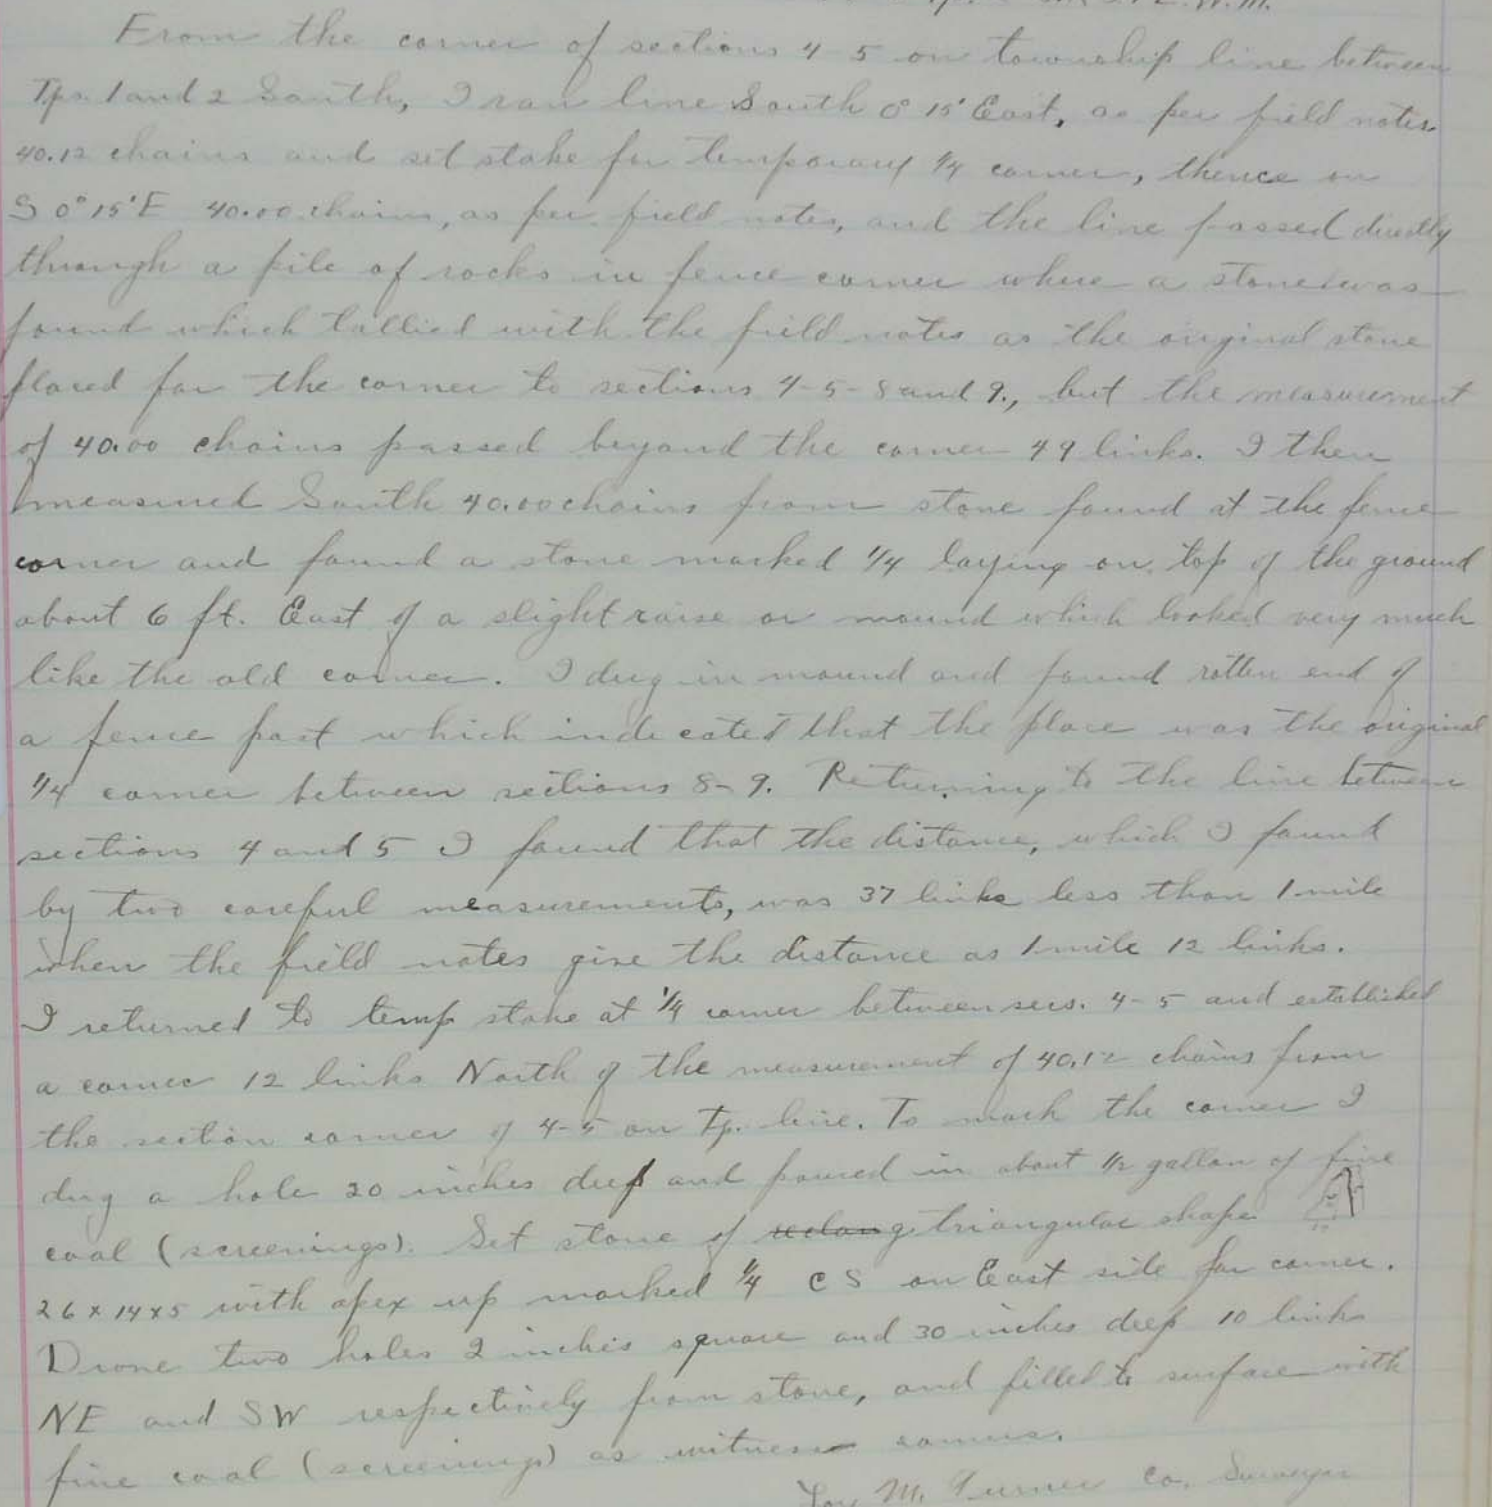 W.M.
From the corner of sections 4-5 on township line between
Tps. 1 and 2 South, I ran line South 0° 15' East, as per field notes
40.12 chains and set stake for temporary 1/4 corner, thence on
S 0° 15' E 40.00 chains, as per field notes, and the line passed directly
through a pile of rocks in fence corner where a stone was
found which tallied with the field notes as the original stone
placed for the corner to sections 4-5-8 and 9., but the measurement
of 40.00 chains passed beyond the corner 49 links. I then
measured South 40.00 chains from stone found at the fence
corner and found a stone marked 1/4 laying on top of the ground
about 6 ft. East of a slight raise or mound which looked very much
like the old corner. I dug in mound and found rotten end of
a fence post which indicated that the place was the original
1/4 corner between sections 8-9. Returning to the line between
sections 4 and 5 I found that the distance, which I found
by two careful measurements, was 37 links less than 1 mile
when the field notes give the distance as 1 mile 12 links.
I returned to temp stake at 1/4 corner between secs. 4-5 and established
a corner 12 links North of the measurement of 40.12 chains from
the section corner of 4-5 on Tp. line. To mark the corner I
dug a hole 20 inches deep and poured in about 1/2 gallon of fine
coal (screenings). Set stone of triangular shape
26 x 14 x 5 with apex up marked 1/4 C S on East side for corner.
Drove two holes 2 inches square and 30 inches deep 10 links
NE and SW respectively from stone, and filled to surface with
fine coal (screenings) as witness corners.
M. Turner Co. Surveyor